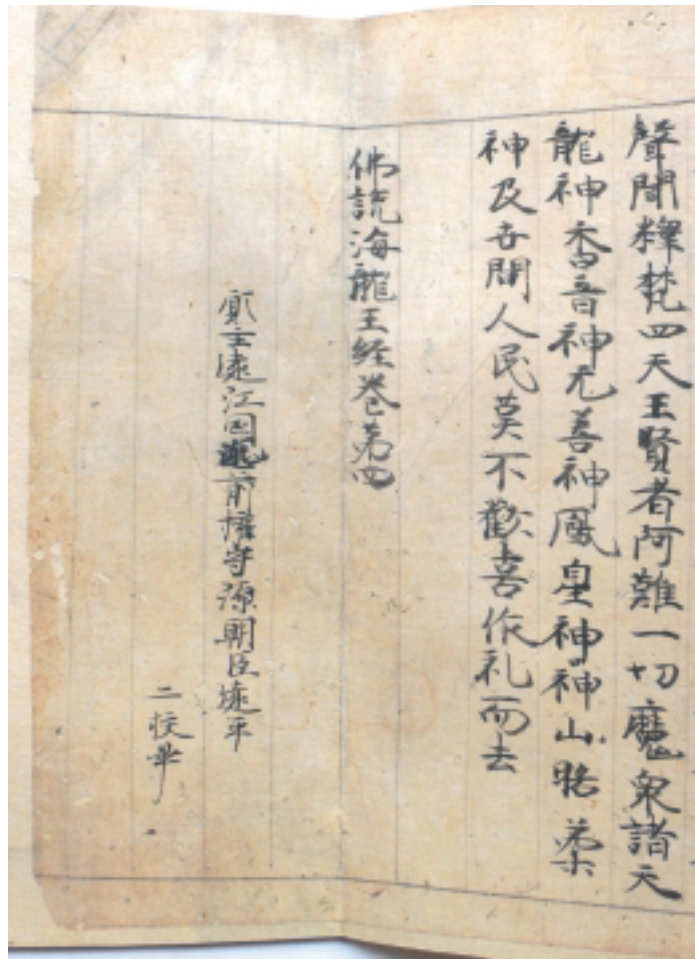 聲聞釋梵四天王賢者阿難一切魔衆諸天
龍神香音神无善神鳳皇神神山臨柔
神及世間人民莫不歡喜作礼而去
佛説海龍王経巻第四
願主遠江国 前権守源朝臣遠平
二校畢